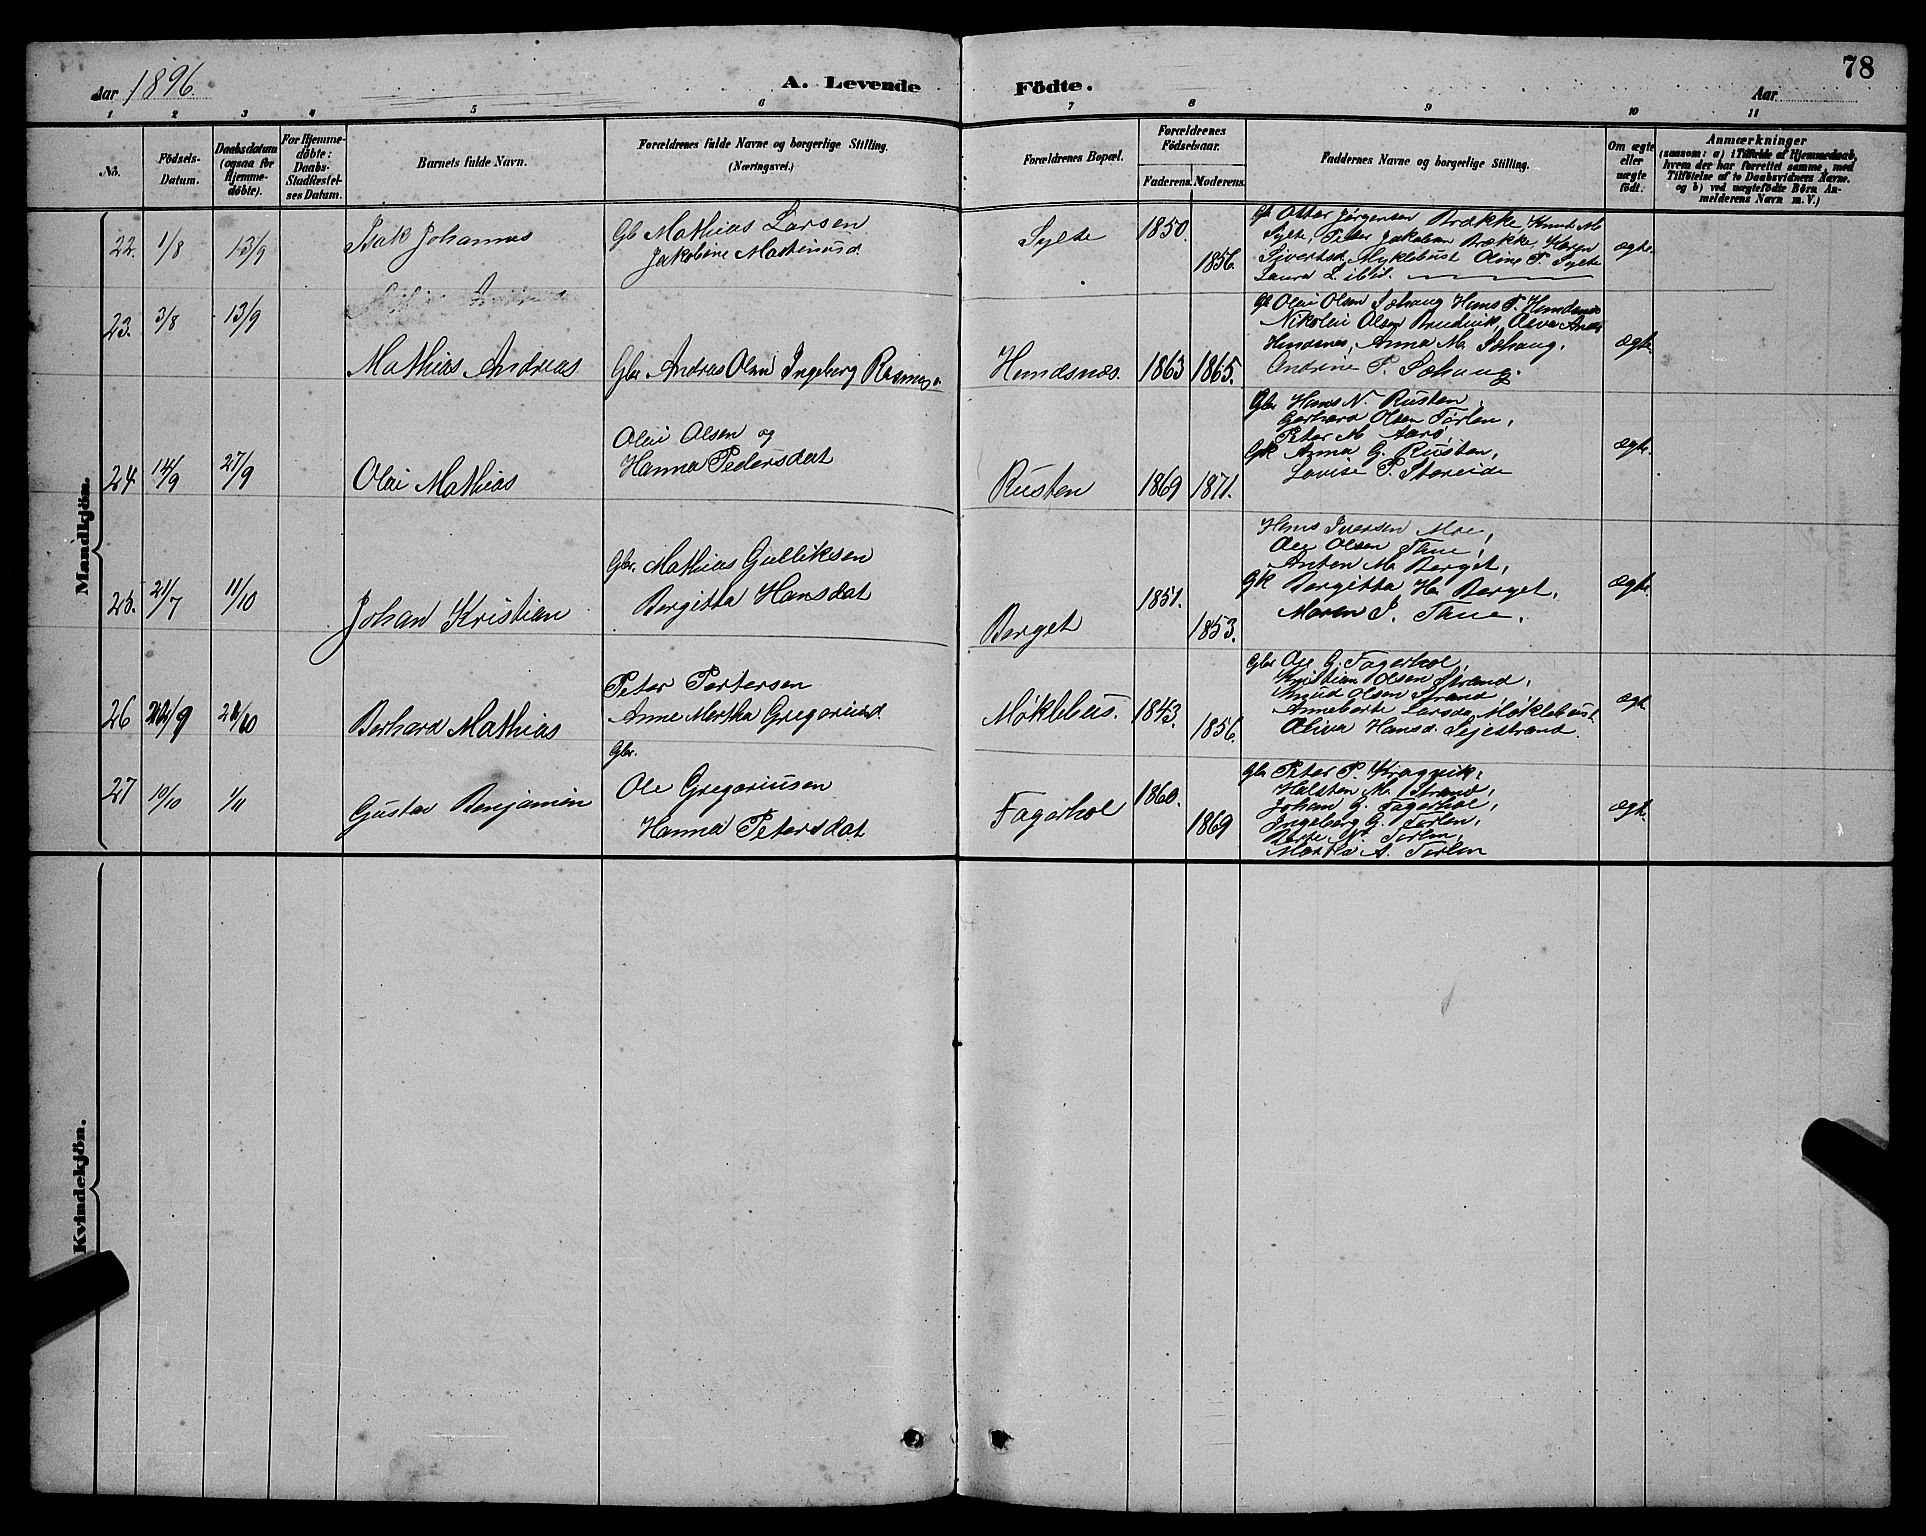 Aar 1896.
A. Levende Födte.
78
Aar
1 2 3 4 5 6 7 8 9 10 11
No.
Födsels-Datum.
Daabsdatum (ogsaa for Hjemme-döbte).
For Hjemme-döbte: Daabs-Stadfæstel-ses Datum.
Barnets fulde Navn.
Forældrenes fulde Navne og borgerlige Stilling.
(Næringsvei.)
Forældrenes Bopæl.
Forældrenes Födselsaar.
Faderens. Moderens.
Faddernes Navne og borgerlige Stilling.
Om ægte eller uægte födt.
Anmærkninger
(saasom: a) i Tilfælde af Hjemmedaab, hvem der har forrettet samme, med Tilföielse af to Daabsvidners Navne. og b) ved uægtefödte Börn An-melderens Navn m. V.)
Mandkjön.
22. 1/8 13/9 Isak Johannes
Gb Mathias Larsen
Jakobine Mathiasd.
Sylte 1850. 1856.
Gb Otter Jørgensen Brække, Knut M
Sylte, Peter Jakobsen Brække, Karen
Sivertsd. Myklebust Oline P. Sylte
Laura L. ibid.
ægte.
23. 3/8 13/9
Mathias Andreas
Gbr Andras Olsen Ingeborg Rasmusd.
Hundsnæs. 1863 1865.
Gb Olai Olsen Sohaug Hans P. Hundsnæs
Nikolai Olsen Brudevik,
Hundsnes, Anna M. Sohaug.
Andrine P. Sohaug.
ægte.
24. 14/9 27/9 Olai Mathias
Olai Olsen og
Hanna Pedersdat
Rusten 1869 1871.
Gbr Hans N. Rusten,
Gerhard Olsen Tørlen,
Peter M. Aarø,
Gk Anna G. Rusten,
Lovise P. Storeide
ægte.
25. 21/7 11/10 Johan Kristian
Gbr. Mathias Gulliksen
Bergitta Hansdat
Berget 1851. 1853.
Hans Iversen Moe,
Ole Olsen Taue,
Anten M. Berget,
Gk Bergitta H. Berget,
Maren I. Taue.
ægte.
26 22/9 20/10 Berhard Mathias
Peter Pettersen
Anne Martha Gregoriusd.
Møklebus. 1843. 1856.
Gbr Ole G. Fagerhol,
Kristian Olsen Strand,
Knud Olsen Strand,
Anneberte Larsd. Møklebust
Oliva Hansd. Sejestrand.
ægte
27 10/10 1/11 Gustav Benjamin
Gbr.
Ole Gregoriusen
Hanna Petersdat
Fagerhol 1860. 1869
Gbr Peter P. Kragvik,
Halsten M. Strand,
Johan G. Fagerhol,
Ingeborg G. Tørlen,
Tørlen,
Martha A. Tørlen
ægte.
Kvindekjön.